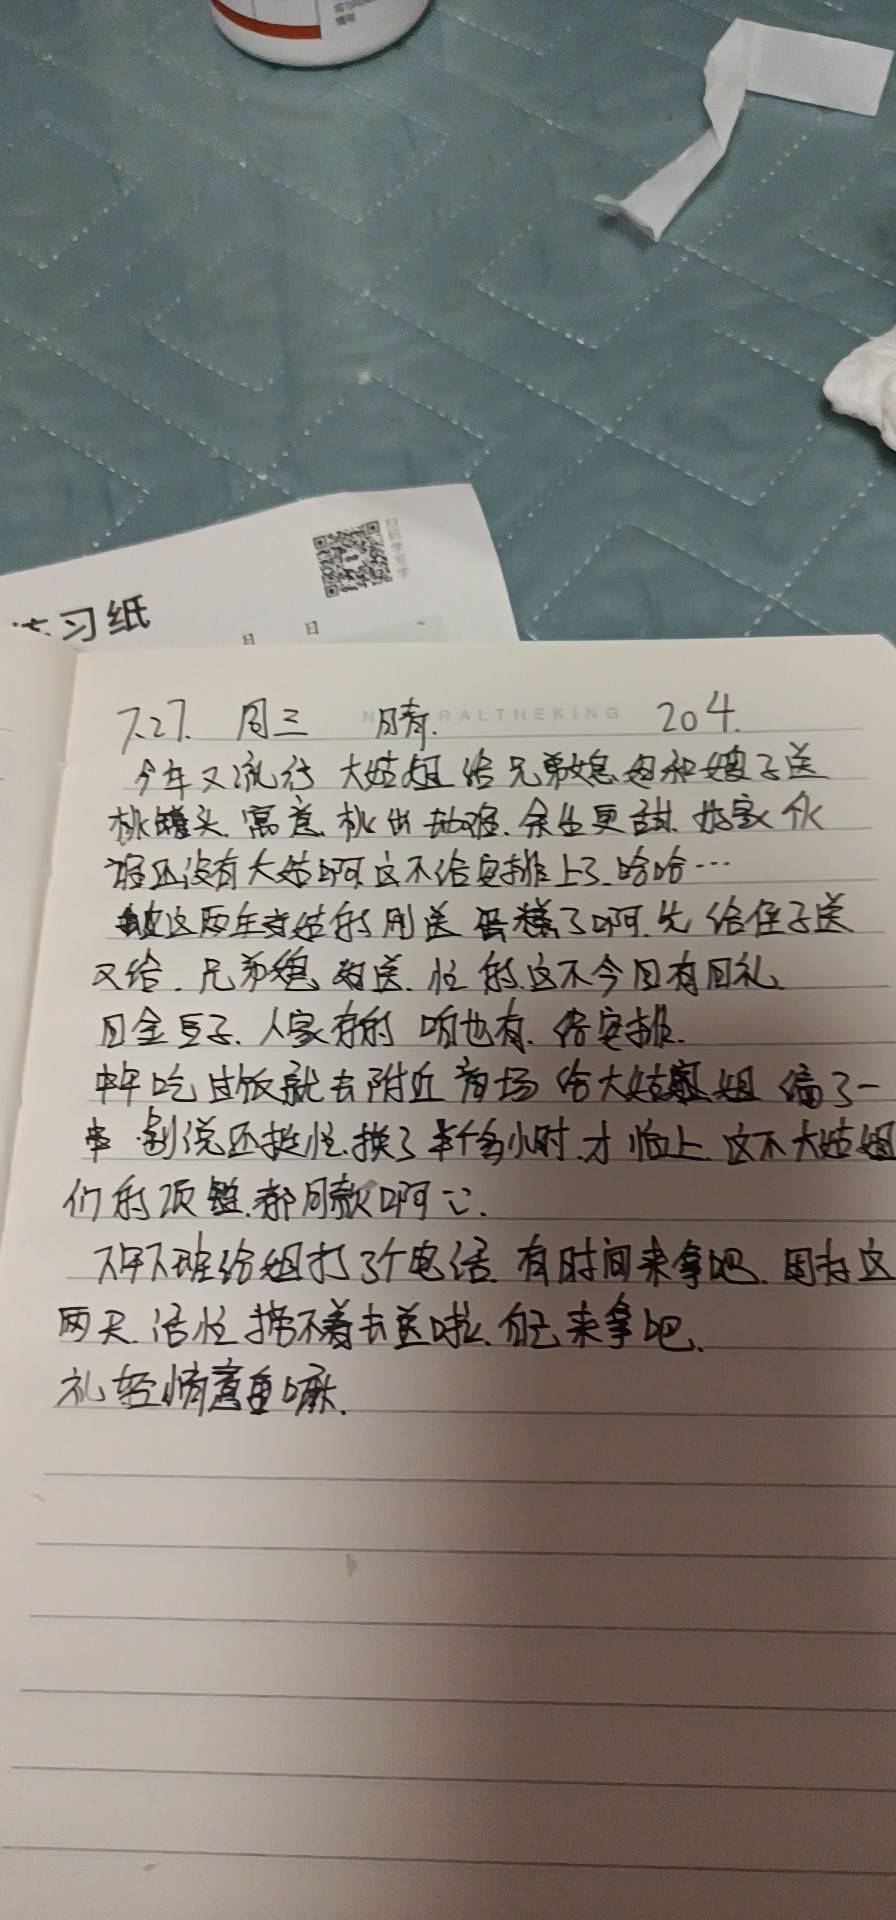 练习纸
日 日
扫码学写字
NATURALTHEKING
7.27. 周三 晴. 204.
今年又流行 大姑姐给兄弟媳妇和嫂子送
桃罐头. 寓意. 桃出劫难. 余生更甜. 大伙
谁还没有大姑啊 这不给安排上了. 哈哈…
这两年大姑的 刚送 蛋糕了啊. 先给侄子送
又给. 兄弟媳妇送. 忙的. 这不今日有回礼
回金豆子. 人家有的 咱也有. 给安排.
中午吃过饭就去附近商场 给大姑姐 编了一
串 别说还挺忙. 换了半个多小时. 才临上. 这不大姑姐
们的项链. 都同款啊
下午下班给姐打了个电话. 有时间来拿吧. 因为这
两天. 活忙 捞不着去送啦. 自己来拿吧.
礼轻情意重嘛.